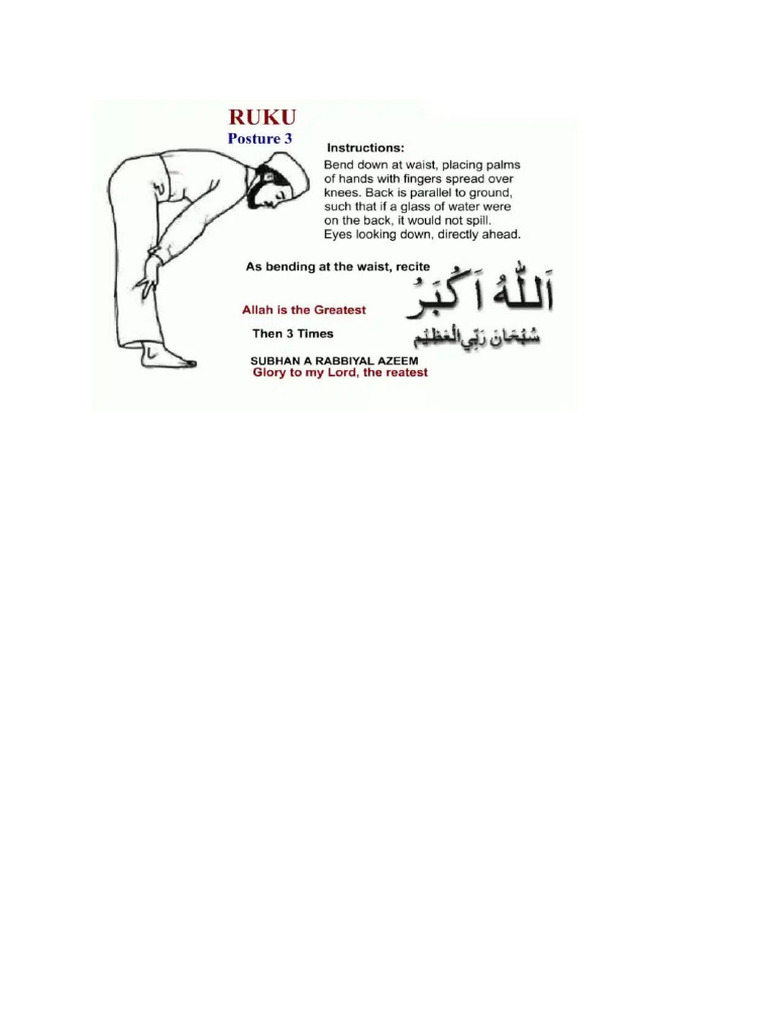 RUKU
Posture 3
Instructions:
Bend down at waist, placing palms
of hands with fingers spread over
knees. Back is parallel to ground,
such that if a glass of water were
on the back, it would not spill.
Eyes looking down, directly ahead.
As bending at the waist, recite
اَللّٰهُ اَكْبَرُ
Allah is the Greatest
Then 3 Times
سُبْحَانَ رَبِّيَ الْعَظِيْمِ
SUBHAN A RABBIYAL AZEEM
Glory to my Lord, the reatest